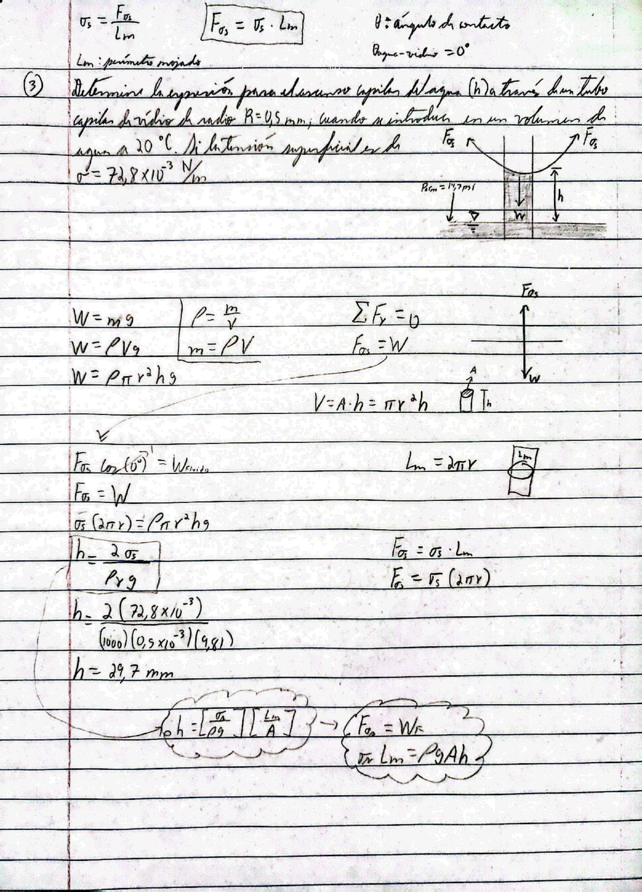 σs = Fσs / Lm
Fσs = σs · Lm
θ: ángulo de contacto
θagua-vidrio = 0°
Lm: perímetro mojado
③ Determine la expresión para el ascenso capilar del agua (h) a través de un tubo
capilar de vidrio de radio R = 0,5 mm, cuando se introduce en un volumen de
agua a 20 °C. Si la tensión superficial es de
σ = 72,8 x 10⁻³ N/m
Fσs Fσs
W h
W = mg
ρ = m/V
ΣFy = 0
Fσs
W = ρVg
m = ρV
Fσs = W
W
W = ρπr²hg
A
V = A·h = πr²h
h
Fσs cos(0°) = W
1
Lm = 2πr
Lm
Fσs = W
σs (2πr) = ρπr²hg
h = 2σs / ρrg
Fσs = σs · Lm
Fσs = σs (2πr)
h = 2(72,8x10⁻³) / (1000)(0,5x10⁻³)(9,81)
h = 29,7 mm
h = [σs/ρg] [Lm/A] →
Fσs = WF
σs Lm = ρgAh